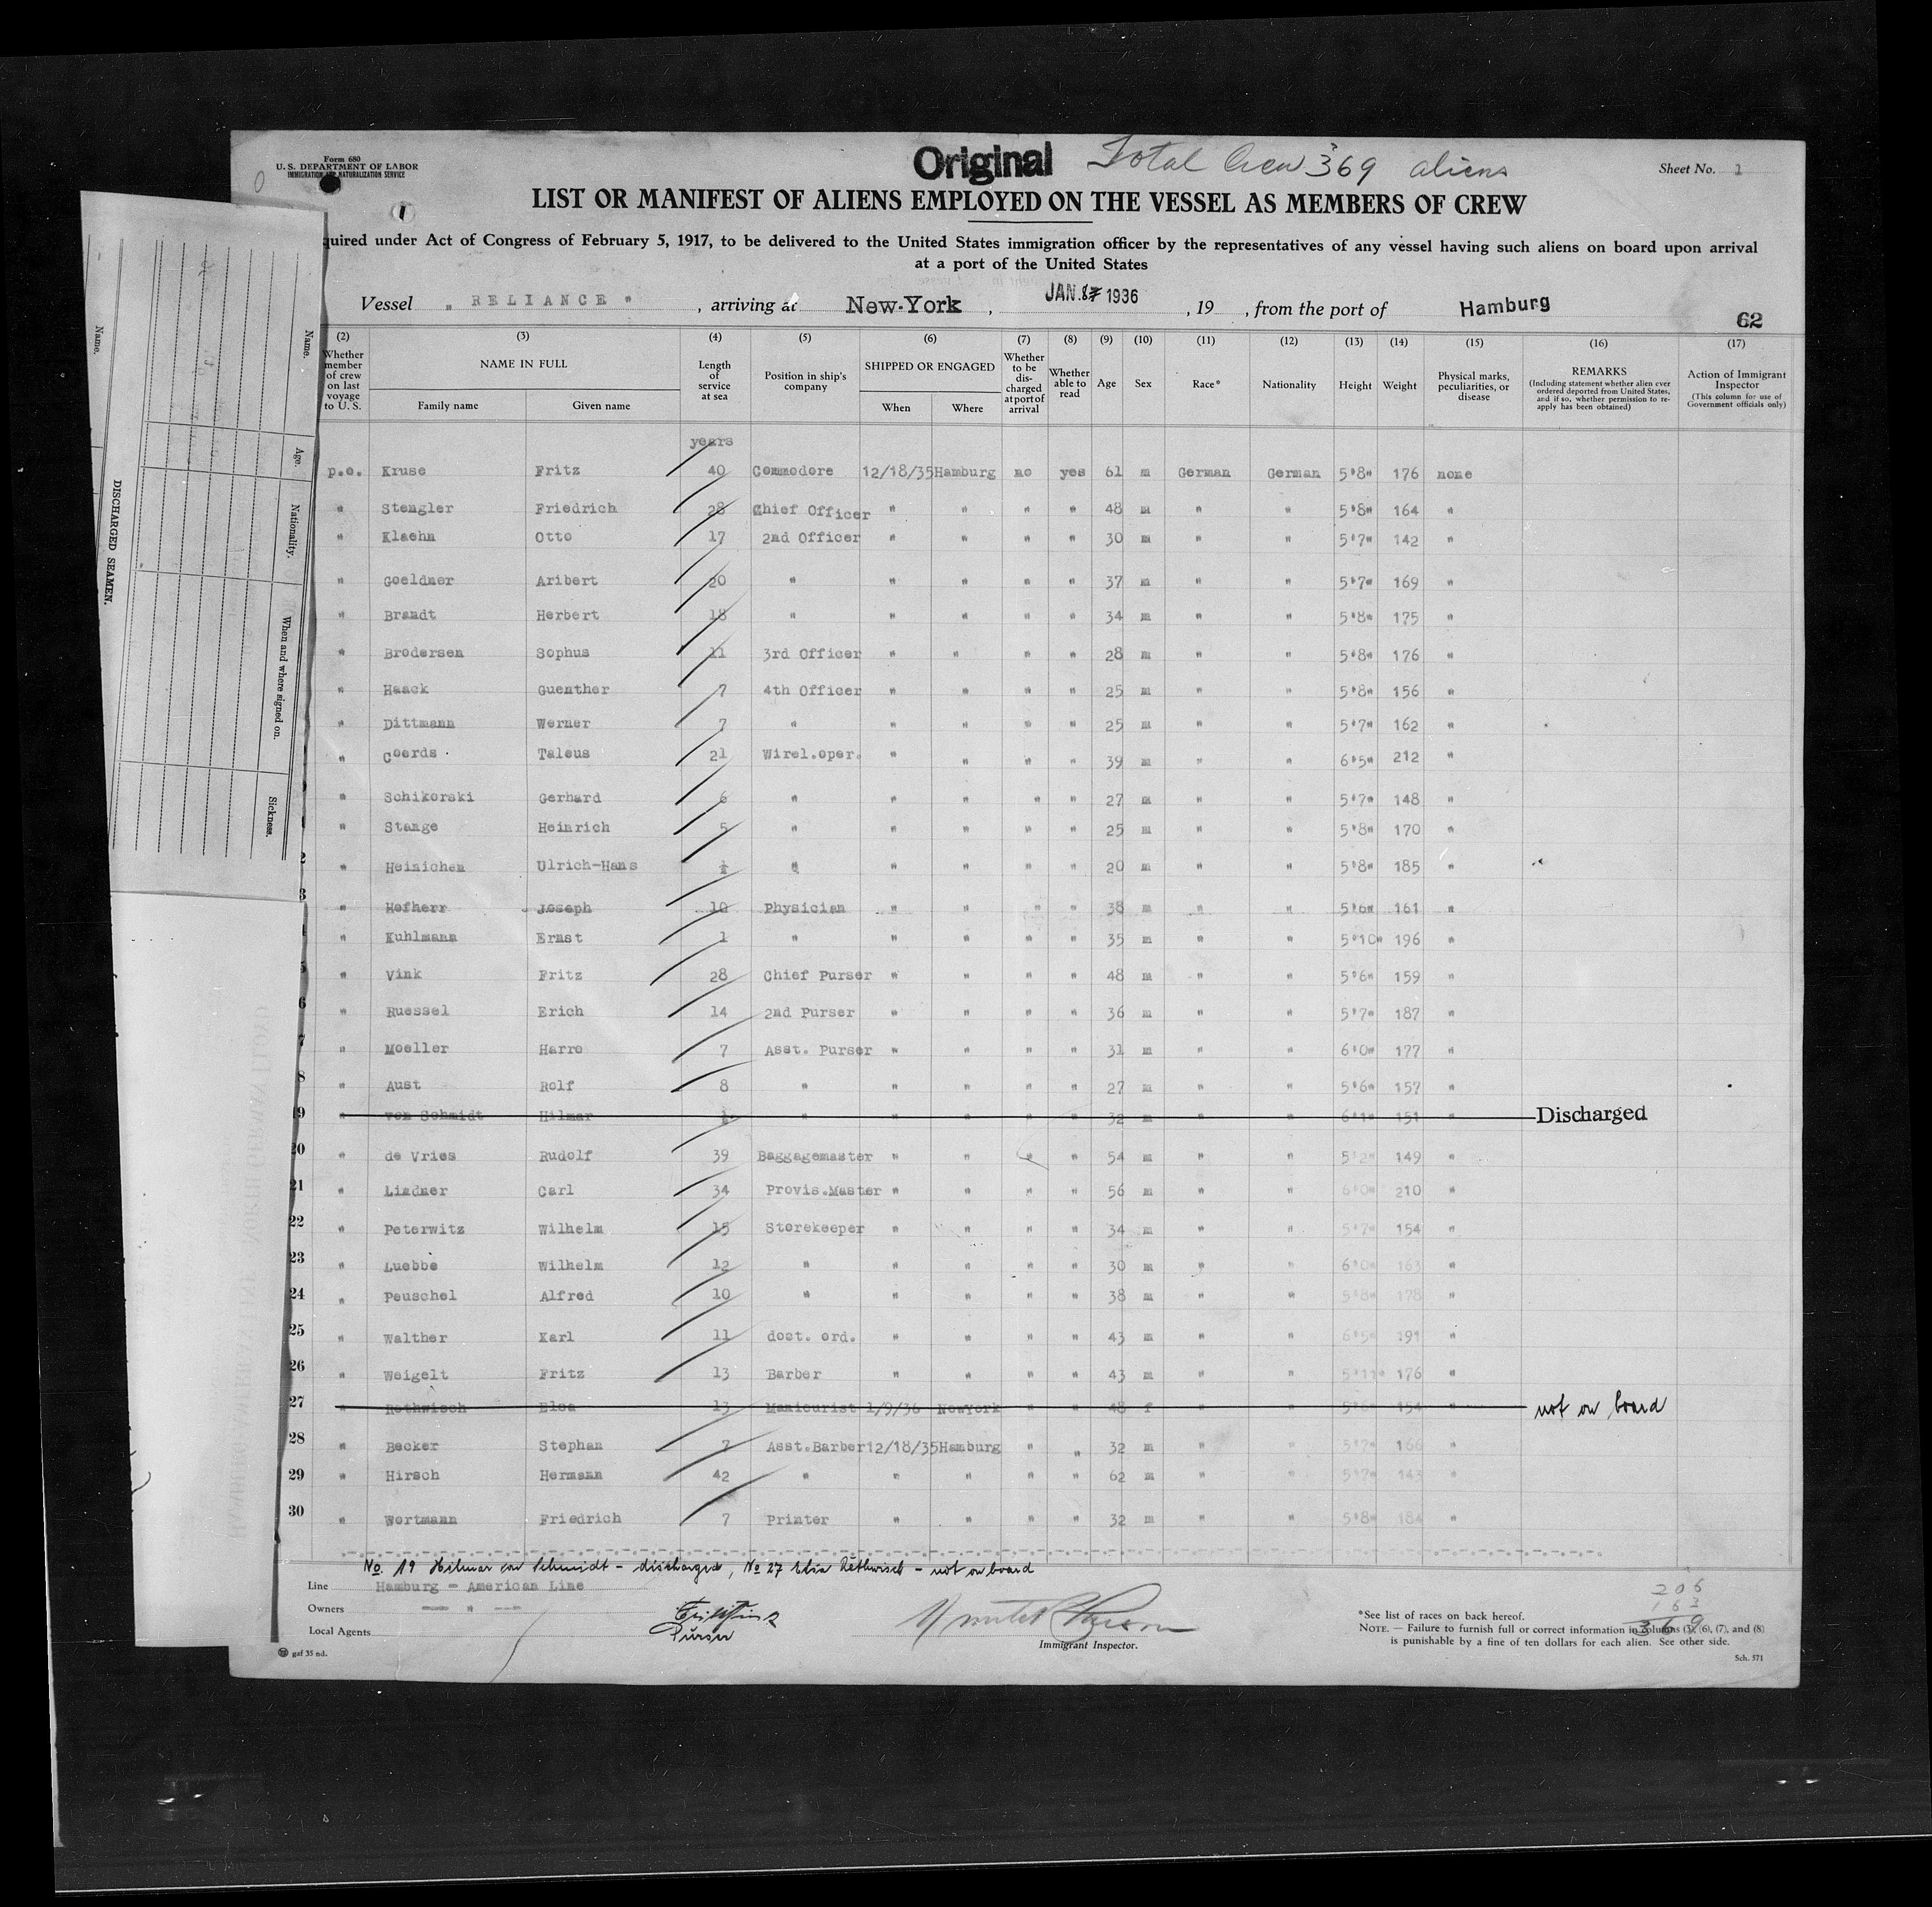 Form 680
U. S. DEPARTMENT OF LABOR
IMMIGRATION AND NATURALIZATION SERVICE
Original Total Crew 369 aliens
Sheet No. 1
LIST OR MANIFEST OF ALIENS EMPLOYED ON THE VESSEL AS MEMBERS OF CREW
quired under Act of Congress of February 5, 1917, to be delivered to the United States immigration officer by the representatives of any vessel having such aliens on board upon arrival
at a port of the United States
Vessel " RELIANCE " , arriving at New-York , JAN. 1936 , 19 , from the port of Hamburg
62
(2) (3) (4) (5) (6) (7) (8) (9) (10) (11) (12) (13) (14) (15) (16) (17)
Whether member of crew on last voyage to U. S.
NAME IN FULL
Family name Given name
Length of service at sea
Position in ship's company
SHIPPED OR ENGAGED
When Where
Whether to be discharged at port of arrival
Whether able to read
Age
Sex
Race*
Nationality
Height
Weight
Physical marks, peculiarities, or disease
REMARKS
(Including statement whether alien ever ordered deported from United States, and if so, whether permission to re-apply has been obtained)
Action of Immigrant Inspector
(This column for use of Government officials only)
years
p.e. Kruse Fritz 40 Commodore 12/18/35 Hamburg no yes 61 m German German 5'8" 176 none
" Stengler Friedrich 28 Chief Officer " " " " 48 m " " 5'8" 164 "
" Klaehn Otto 17 2nd Officer " " " " 30 m " " 5'7" 142 "
" Goeldner Aribert 20 " " " " " 37 m " " 5'7" 169 "
" Brandt Herbert 18 " " " " " 34 m " " 5'8" 175 "
" Brodersen Sophus 11 3rd Officer " " " " 28 m " " 5'8" 176 "
" Haack Guenther 7 4th Officer " " " " 25 m " " 5'8" 156 "
" Dittmann Werner 7 " " " " " 25 m " " 5'7" 162 "
" Coerds Taleus 21 Wirel.oper. " " " " 39 m " " 6'5" 212 "
" Schikorski Gerhard 6 " " " " " 27 m " " 5'7" 148 "
" Stange Heinrich 5 " " " " " 25 m " " 5'8" 170 "
2 " Heinichen Ulrich-Hans " " " " " 20 m " " 5'8" 185 "
3 " Hofherr Joseph 10 Physician " " " " 38 m " " 5'6" 161 "
" Kuhlmann Ernst 1 " " " " " 35 m " " 5'10" 196 "
5 " Vink Fritz 28 Chief Purser " " " " 48 m " " 5'6" 159 "
6 " Ruessel Erich 14 2nd Purser " " " " 36 m " " 5'7" 187 "
7 " Moeller Harro 7 Asst. Purser " " " " 31 m " " 6'0" 177 "
8 " Aust Rolf 8 " " " " " 27 m " " 5'6" 157 "
19 " von Schmidt Hilmar " " " " " 32 m " " 6'1" 151 " Discharged
20 " de Vries Rudolf 39 Baggagemaster " " " " 54 m " " 5'2" 149 "
21 " Lindner Carl 34 Provis.Master " " " " 56 m " " 6'0" 210 "
22 " Peterwitz Wilhelm 15 Storekeeper " " " " 34 m " " 5'7" 154 "
23 " Luebbe Wilhelm 12 " " " " " 30 m " " 6'0" 163 "
24 " Peuschel Alfred 10 " " " " " 38 m " " 5'8" 178 "
25 " Walther Karl 11 doct. ord. " " " " 43 m " " 6'5" 191 "
26 " Weigelt Fritz 13 Barber " " " " 43 m " " 5'11" 176 "
27 " Rethwisch Elsa 13 Manicurist 1/9/36 NewYork " " 48 f " " 154 " not on board
28 " Becker Stephan 7 Asst.Barber 12/18/35 Hamburg " " 32 m " " 5'7" 166 "
29 " Hirsch Hermann 42 " " " " " 62 m " " 5'7" 143 "
30 " Wortmann Friedrich 7 Printer " " " " 32 m " " 5'8" 184 "
No. 19 Hilmar von Schmidt - discharged, No 27 Elsa Rethwisch - not on board
Line Hamburg - American Line
Owners — " —
Local Agents
Purser
Immigrant Inspector.
206
163
369
*See list of races on back hereof.
NOTE. — Failure to furnish full or correct information in columns (3), (6), (7), and (8)
is punishable by a fine of ten dollars for each alien. See other side.
gaf 35 nd.
Sch. 571
DISCHARGED SEAMEN.
Name. Age. Nationality. When and where signed on. Sickness.
Name.